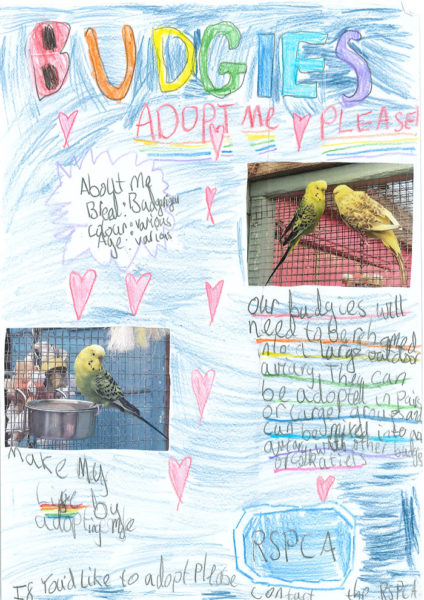 BUDGIES
ADOPT me PLEASE!
About Me
Breed: Budgerigar
Colour: various
Age: various
our budgies will
need to be
into a large outdoor
aviary. They can
be adopted in Pairs
or larger groups and
can be mixed into an
aviary with other budgies
or
Make My
Life by
adopting me
RSPCA
If You'd like to adopt Please
contact the RSPCA